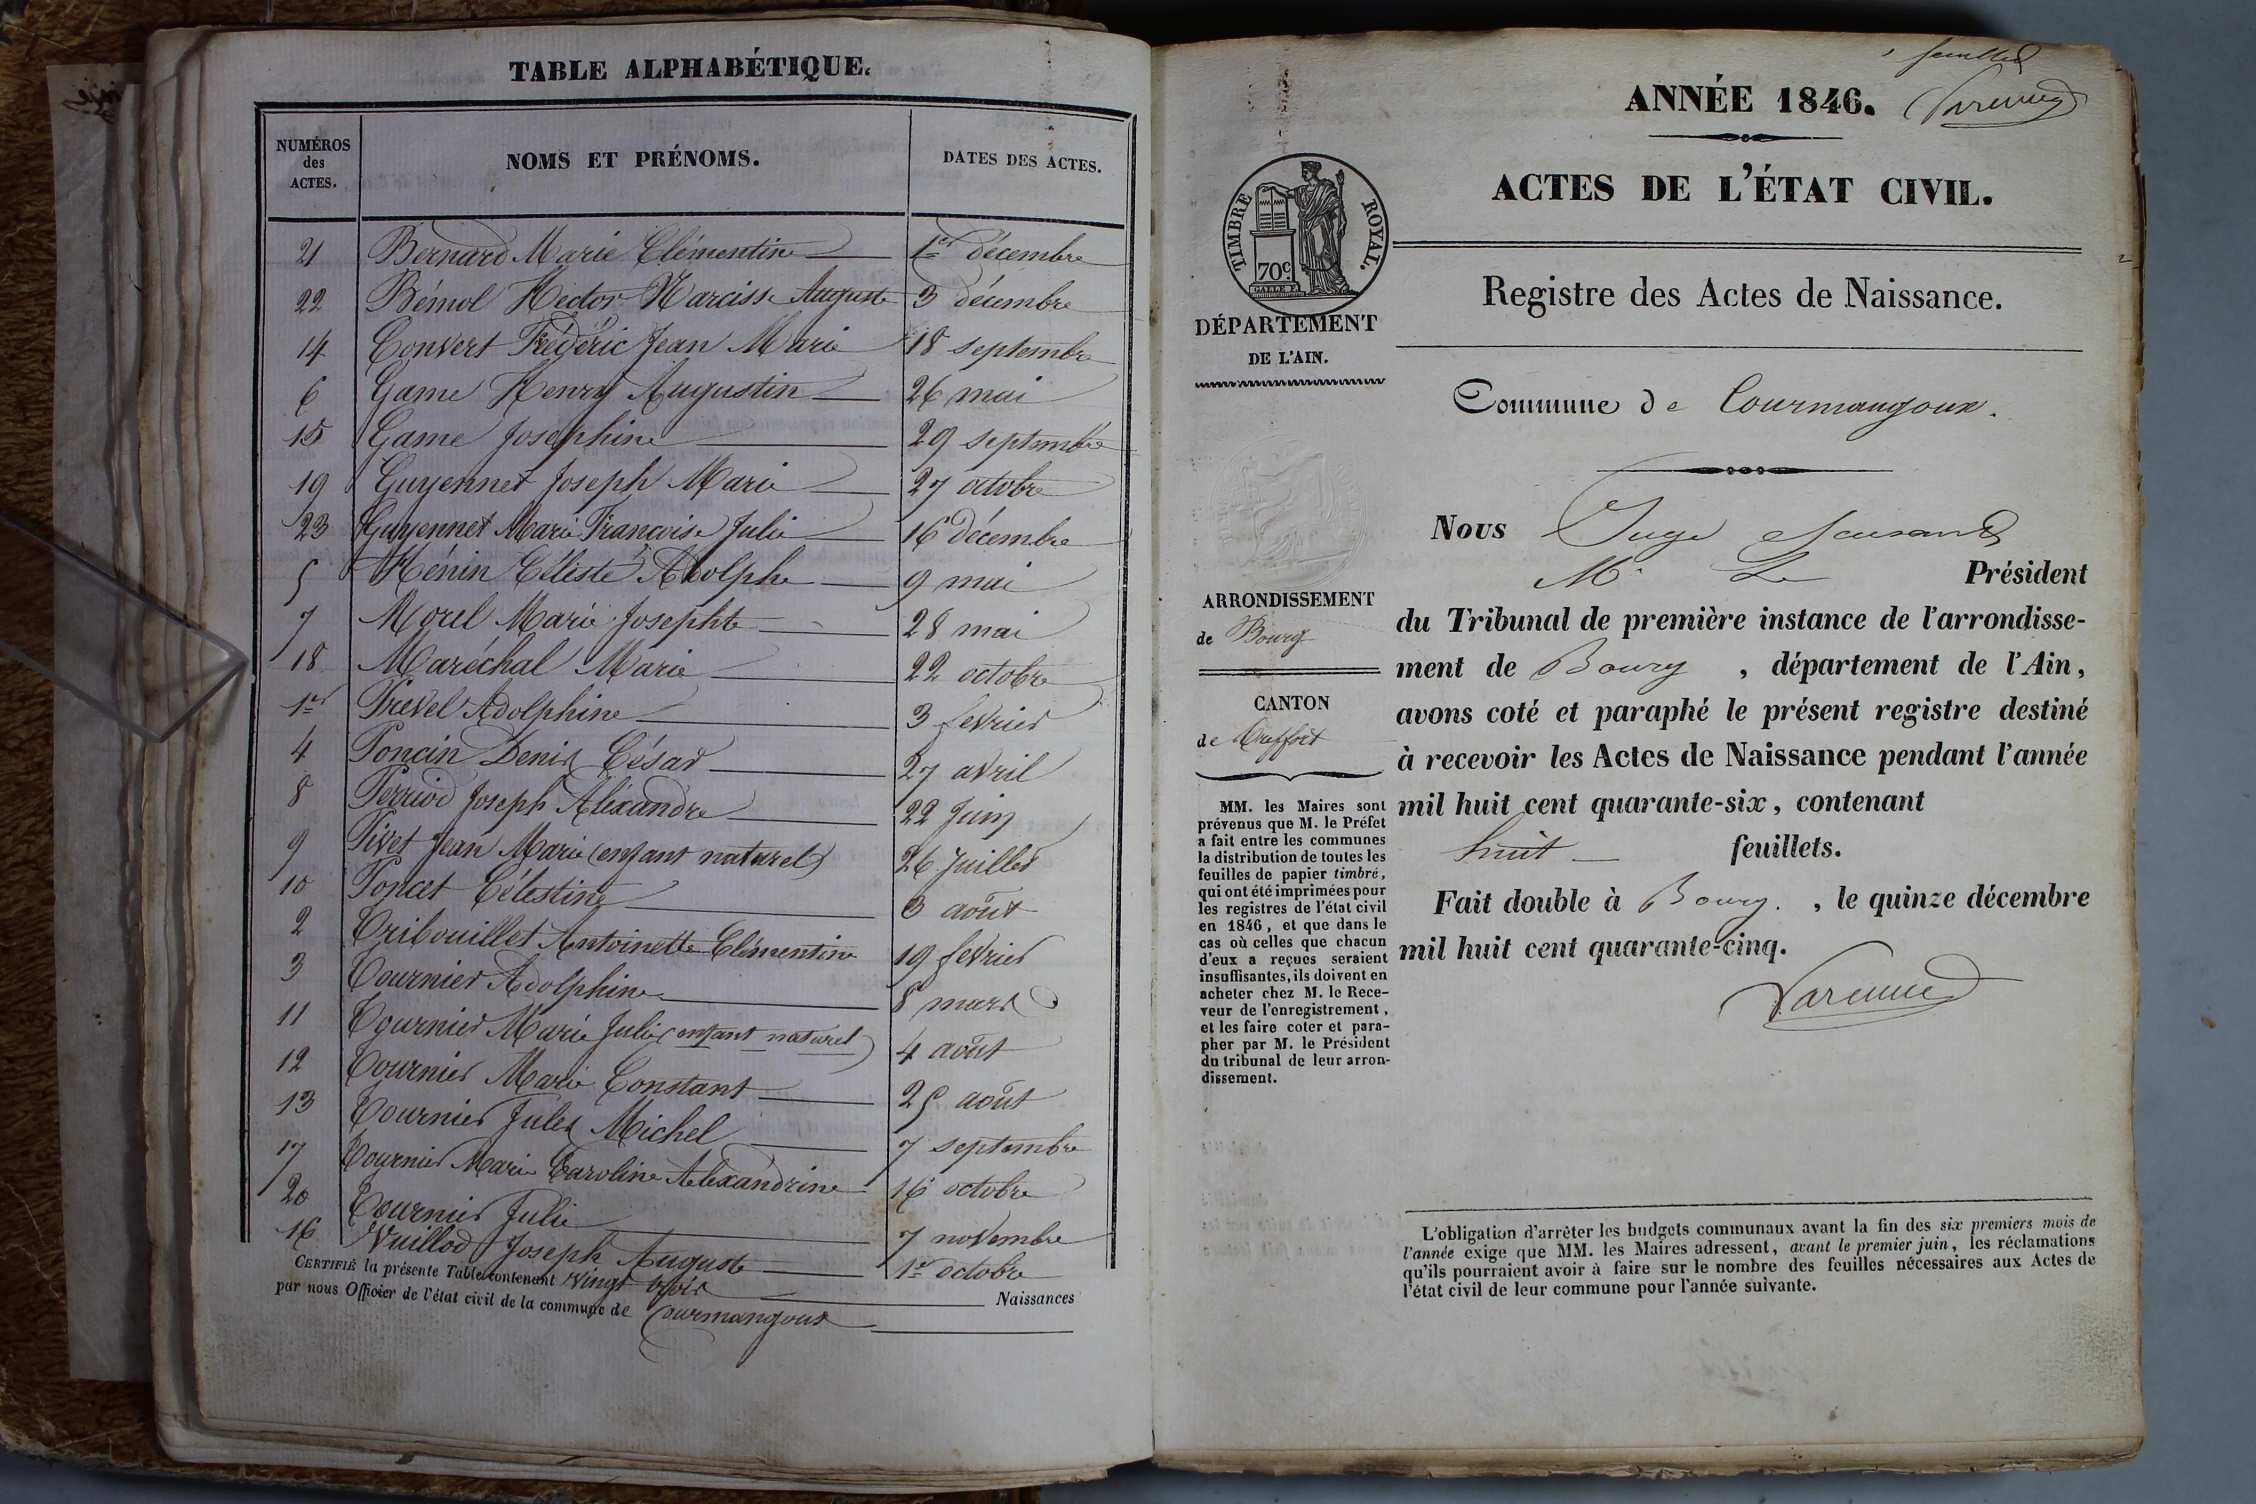 TABLE ALPHABÉTIQUE.
NUMÉROS des ACTES. NOMS ET PRÉNOMS. DATES DES ACTES.
21 Bernard Marie Clémentine 1er décembre
22 Bémol Hector Narcisse Auguste 3 décembre
14 Convert Frédéric Jean Marie 18 septembre
6 Game Henry Augustin 26 mai
15 Game Josephine 29 septembre
19 Guyennet Joseph Marie 27 octobre
23 Guyennet Marie Françoise Julie 16 décembre
5 Hénin Céleste Adolphe 9 mai
7 Morel Marie Josephte 28 mai
18 Maréchal Marie 22 octobre
1er Prevel Adolphine 3 fevrier
4 Poncin Denis César 27 avril
8 Perriod Joseph Aléxandre 22 Juin
9 Pivet Jean Marie (enfant naturel) 26 Juillet
10 Poncet Célestine 3 août
2 Tribouillet Antoinette Clémentine 19 fevrier
3 Tournier Adolphine 8 mars
11 Tournier Marie Julie (enfant naturel) 4 août
12 Tournier Marie Constant 25 août
13 Tournier Jules Michel 7 septembre
17 Tournier Marie Caroline Aléxandrine 16 octobre
20 Tournier Julie 7 novembre
16 Vuillod Joseph Auguste 1er octobre
CERTIFIÉ la présente Table contenant vingt trois Naissances
par nous Officier de l'état civil de la commune de Courmangoux
feuillet
ANNÉE 1846. Varenne
ACTES DE L'ÉTAT CIVIL.
TIMBRE ROYAL.
70c
Registre des Actes de Naissance.
DÉPARTEMENT
DE L'AIN.
Commune de Courmangoux.
Nous Juge
Mr Le Président
du Tribunal de première instance de l'arrondisse-
ment de Bourg, département de l'Ain,
avons coté et paraphé le présent registre destiné
à recevoir les Actes de Naissance pendant l'année
mil huit cent quarante-six, contenant
huit feuillets.
Fait double à Bourg., le quinze décembre
mil huit cent quarante-cinq.
Varenne
ARRONDISSEMENT
de Bourg
CANTON
de Treffort
MM. les Maires sont
prévenus que M. le Préfet
a fait entre les communes
la distribution de toutes les
feuilles de papier timbré,
qui ont été imprimées pour
les registres de l'état civil
en 1846, et que dans le
cas où celles que chacun
d'eux a reçues seraient
insuffisantes, ils doivent en
acheter chez M. le Rece-
veur de l'enregistrement,
et les faire coter et para-
pher par M. le Président
du tribunal de leur arron-
dissement.
L'obligation d'arrêter les budgets communaux avant la fin des six premiers mois de
l'année exige que MM. les Maires adressent, avant le premier juin, les réclamations
qu'ils pourraient avoir à faire sur le nombre des feuilles nécessaires aux Actes de
l'état civil de leur commune pour l'année suivante.